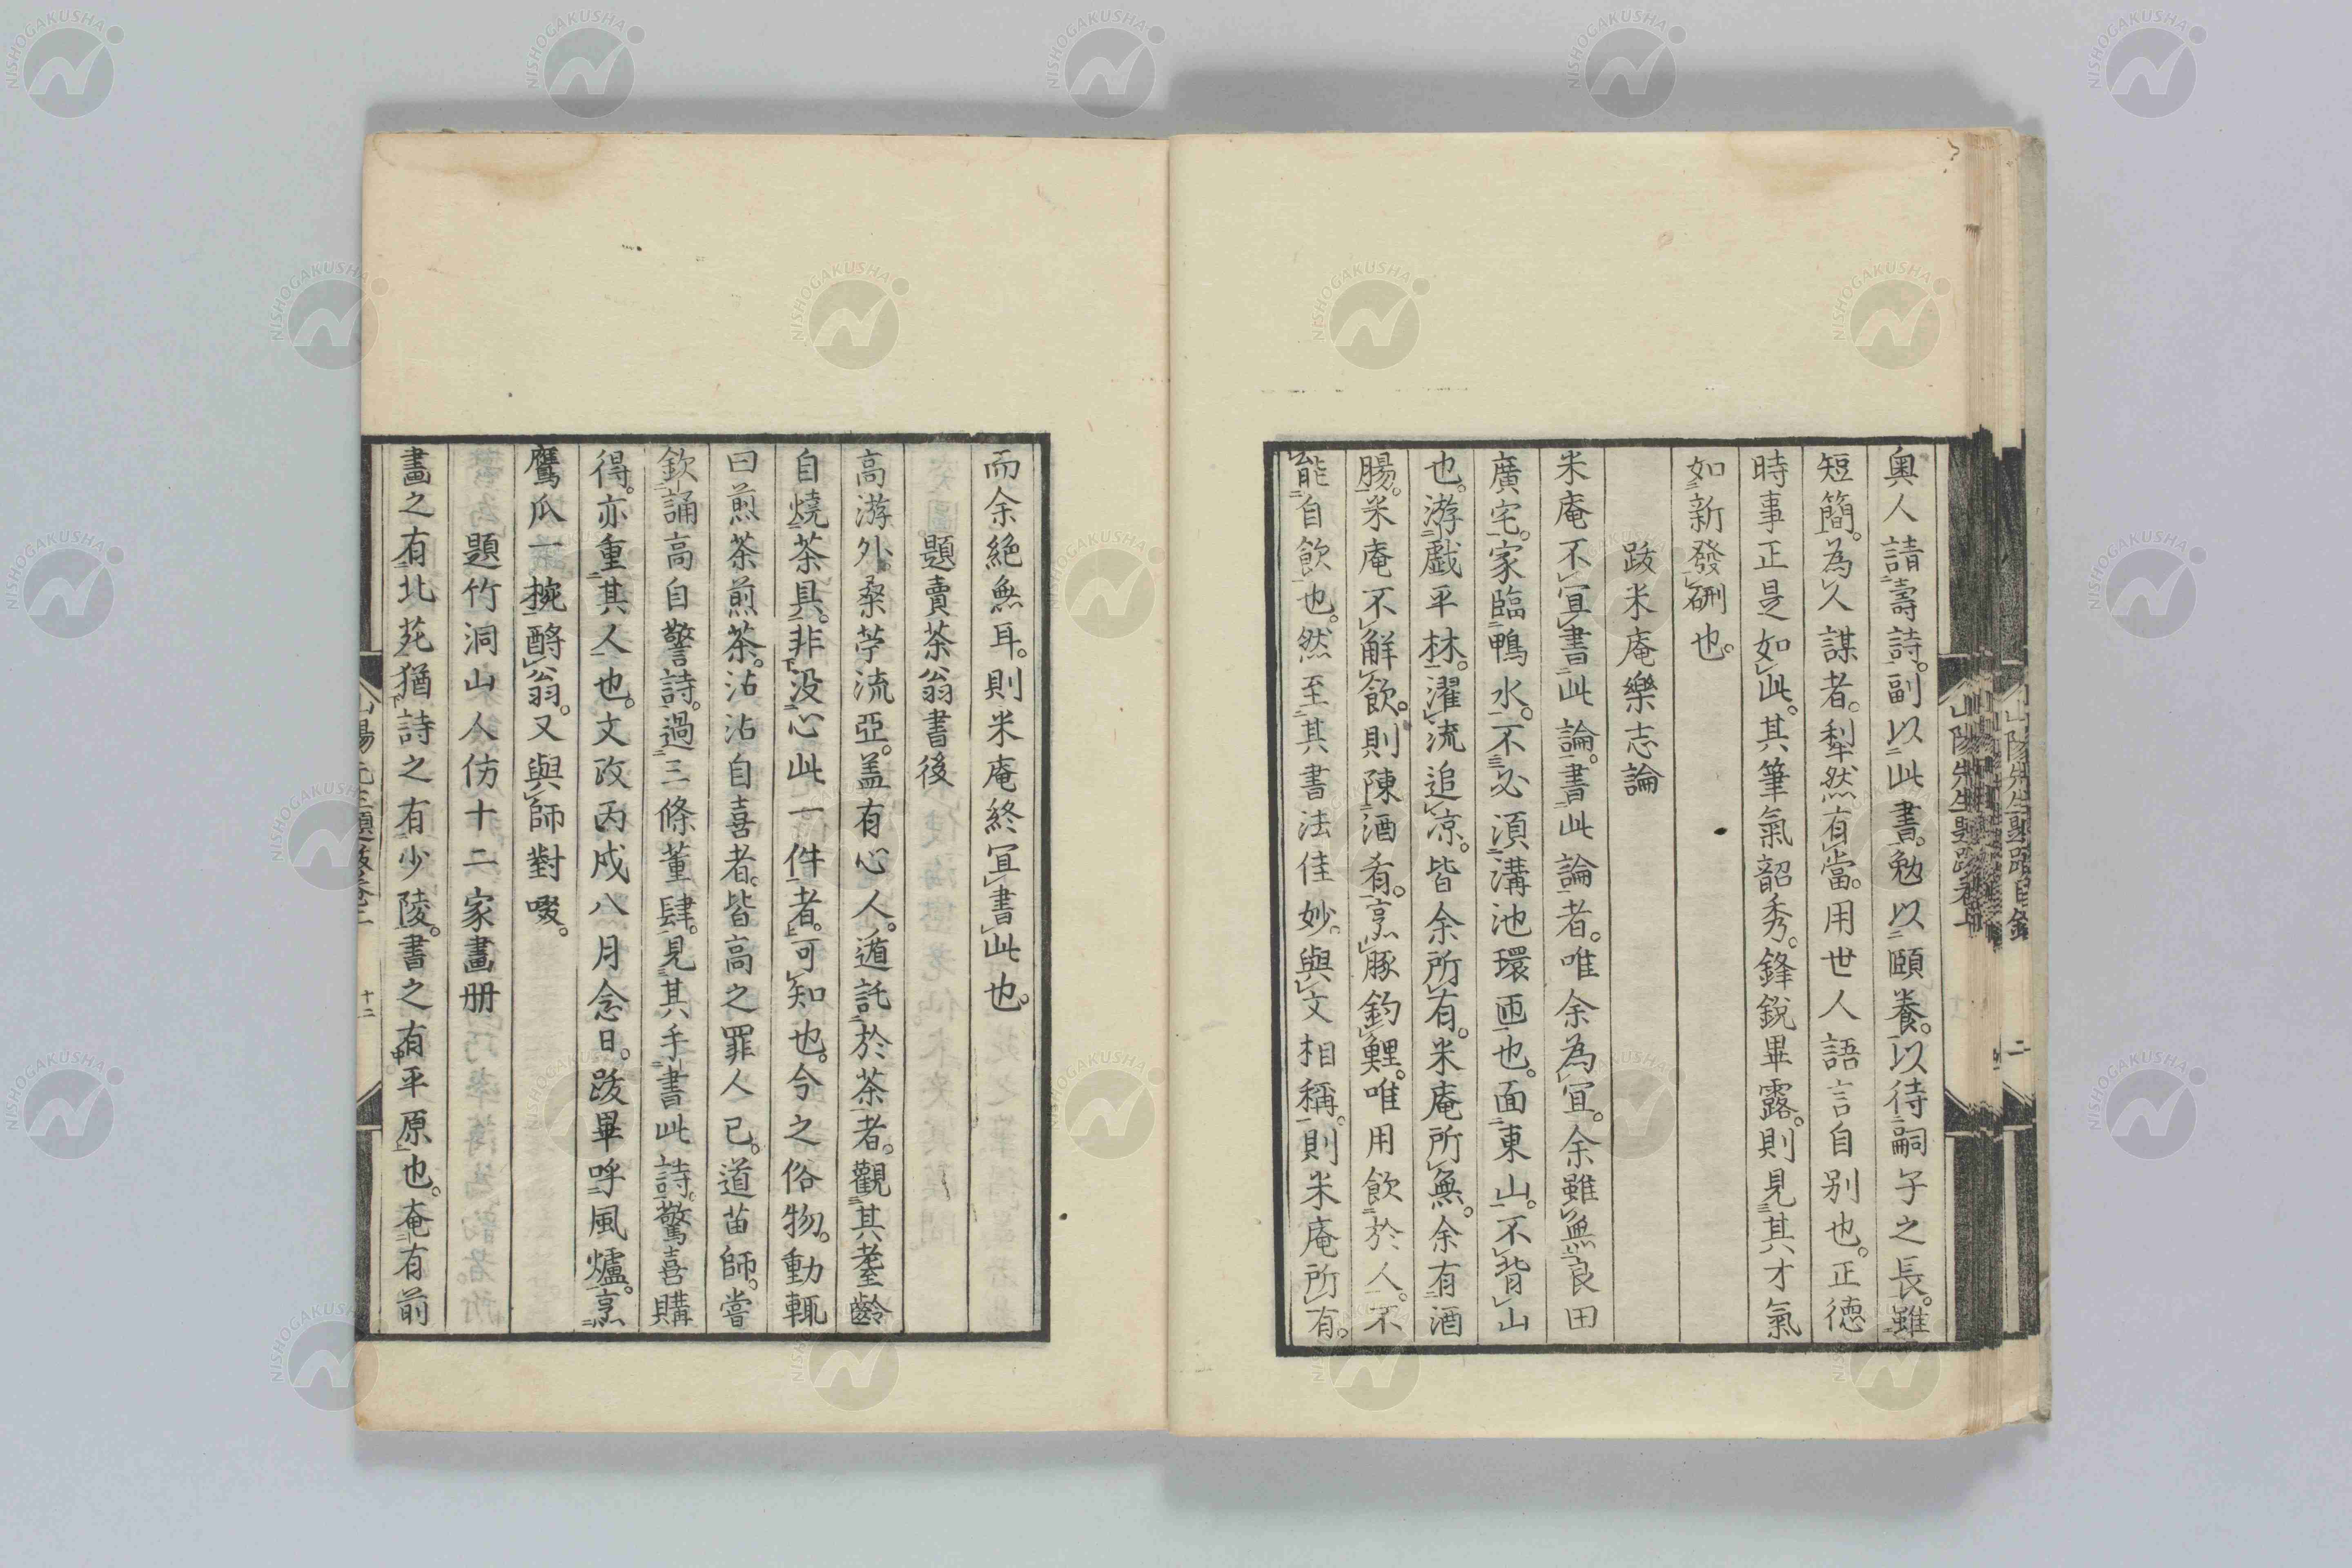 奧人請壽詩。副以此書。勉以頤養。以待嗣子之長。雖
短簡。為久謀者。犁然有當。用世人語言自別也。正德
時事正是如此。其筆氣韶秀。鋒銳畢露。則見其才氣
如新發硎也。
跋米庵樂志論
米庵不宜書此論。書此論者。唯余為宜。余雖無良田
廣宅。家臨鴨水。不必須溝池環匝也。面東山。不背山
也。游戲平林。濯流追涼。皆余所有。米庵所無。余有酒
腸。米庵不解飲。則陳酒肴。烹豚鈞鯉。唯用飲於人。不
能自飲也。然至其書法佳妙。與文相稱。則米庵所有。
而余絕無耳。則米庵終宜書此也。
題賣茶翁書後
高游外。桑苧流亞。蓋有心人。遁託於茶者。觀其耋齡
自燒茶具。非沒心此一件者。可知也。今之俗物。動輒
曰煎茶煎茶。沾沾自喜者。皆高之罪人已。道苗師。嘗
欽誦高自警詩。過三條董肆。見其手書此詩。驚喜購
得。亦重其人也。文政丙戌八月念日。跋畢呼風爐。烹
鷹爪一捥。酹翁。又與師對啜。
題竹洞山人仿十二家畫册
畫之有北苑猶詩之有少陵。書之有平原也。奄有前
十二